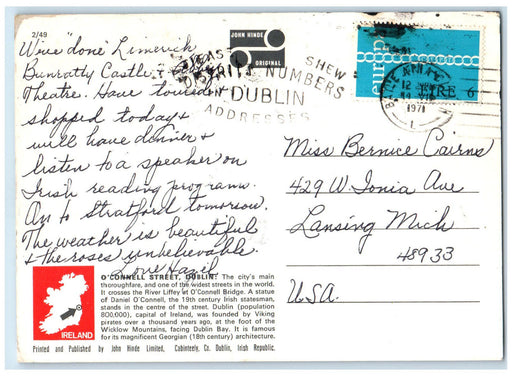 2/49
JOHN HINDE
ORIGINAL
We've "done" Limerick
Bunratty Castle
Theatre. Have toured &
shopped today &
will have dinner &
listen to a speaker on
Irish reading programs.
On to Stratford tomorrow.
The weather is beautiful
& the roses unbelievable.
Love Hazel
PLEASE SHEW
DISTRICT NUMBERS
IN DUBLIN
ADDRESSES
europa
ÉIRE 6
1971
Miss Bernice Cairns
429 W Ionia Ave
Lansing Mich
48933
USA.
IRELAND
O'CONNELL STREET, DUBLIN: The city's main
thoroughfare, and one of the widest streets in the world.
It crosses the River Liffey at O'Connell Bridge. A statue
of Daniel O'Connell, the 19th century Irish statesman,
stands in the centre of the street. Dublin (population
800,000), capital of Ireland, was founded by Viking
pirates over a thousand years ago, at the foot of the
Wicklow Mountains, facing Dublin Bay. It is famous
for its magnificent Georgian (18th century) architecture.
Printed and Published by John Hinde Limited, Cabinteely, Co. Dublin, Irish Republic.